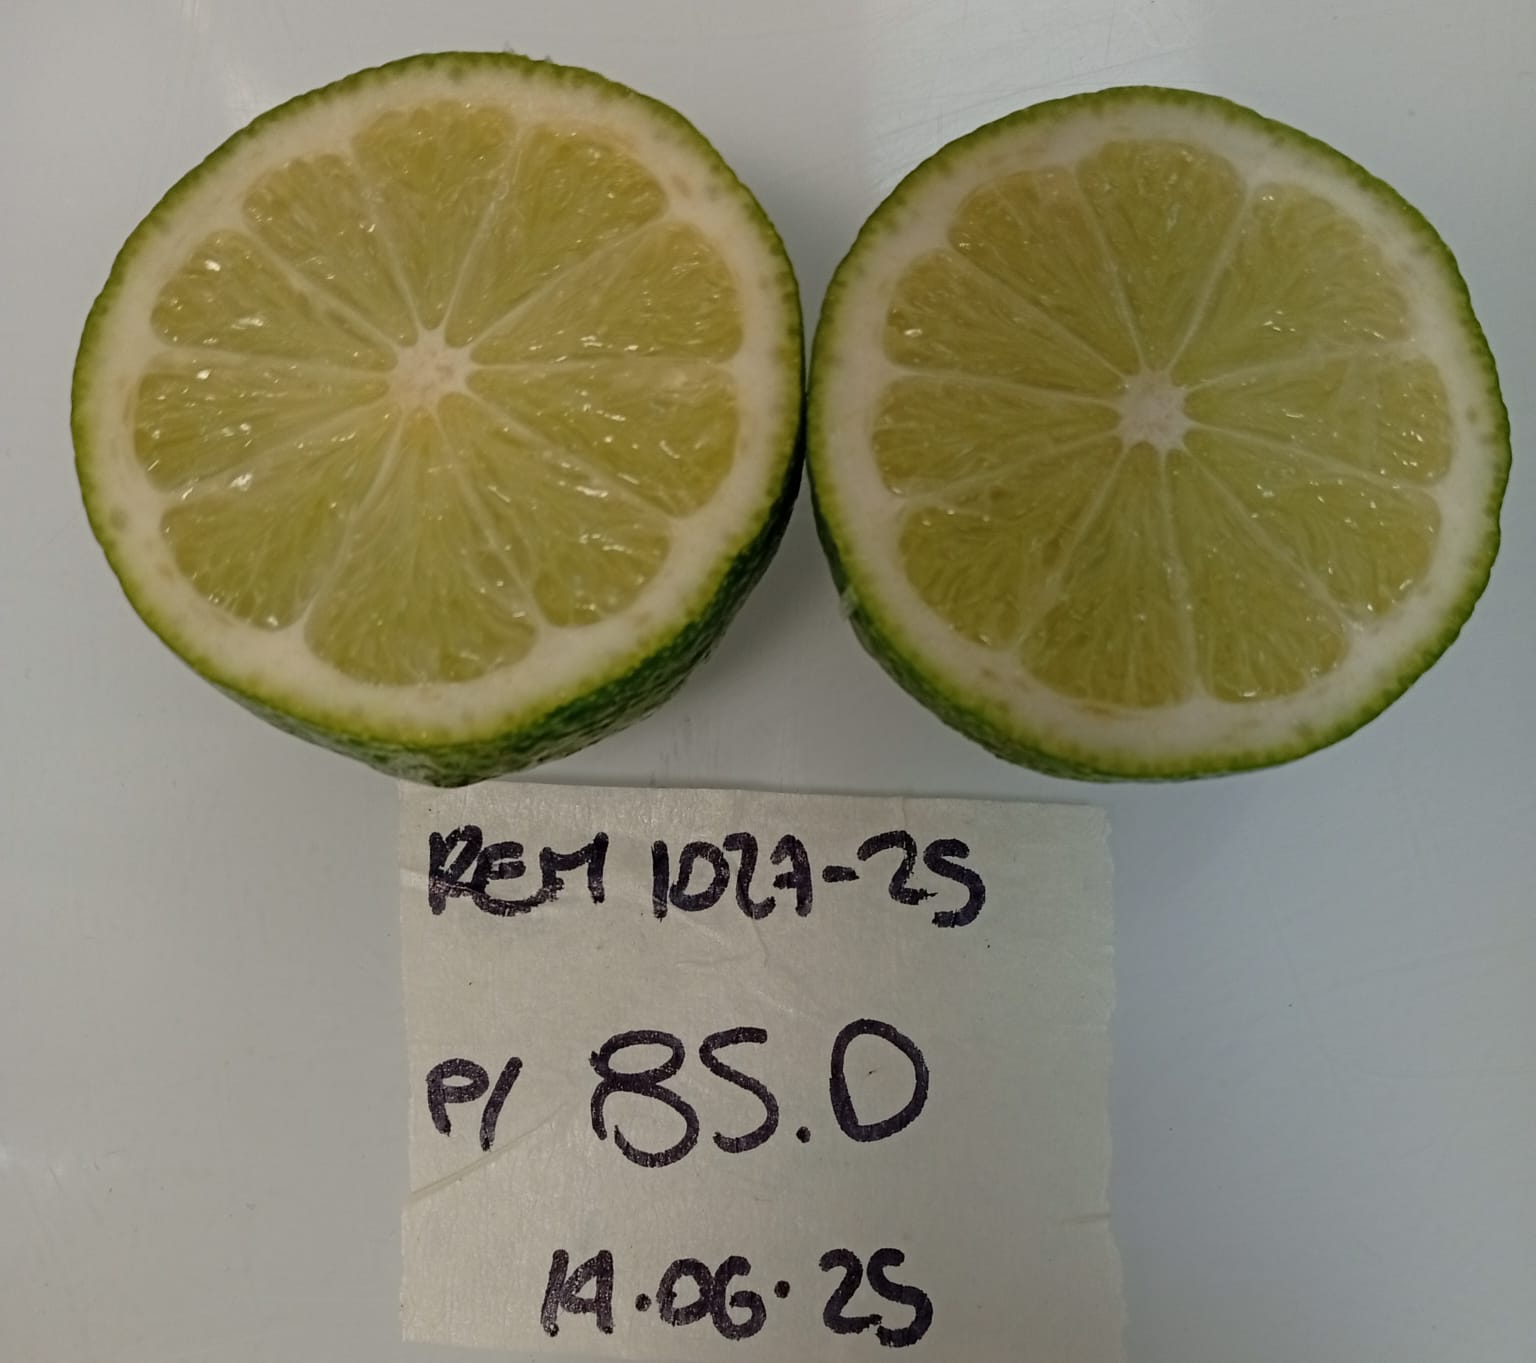 REM 1027-25
P/ 85.0
14.06.25